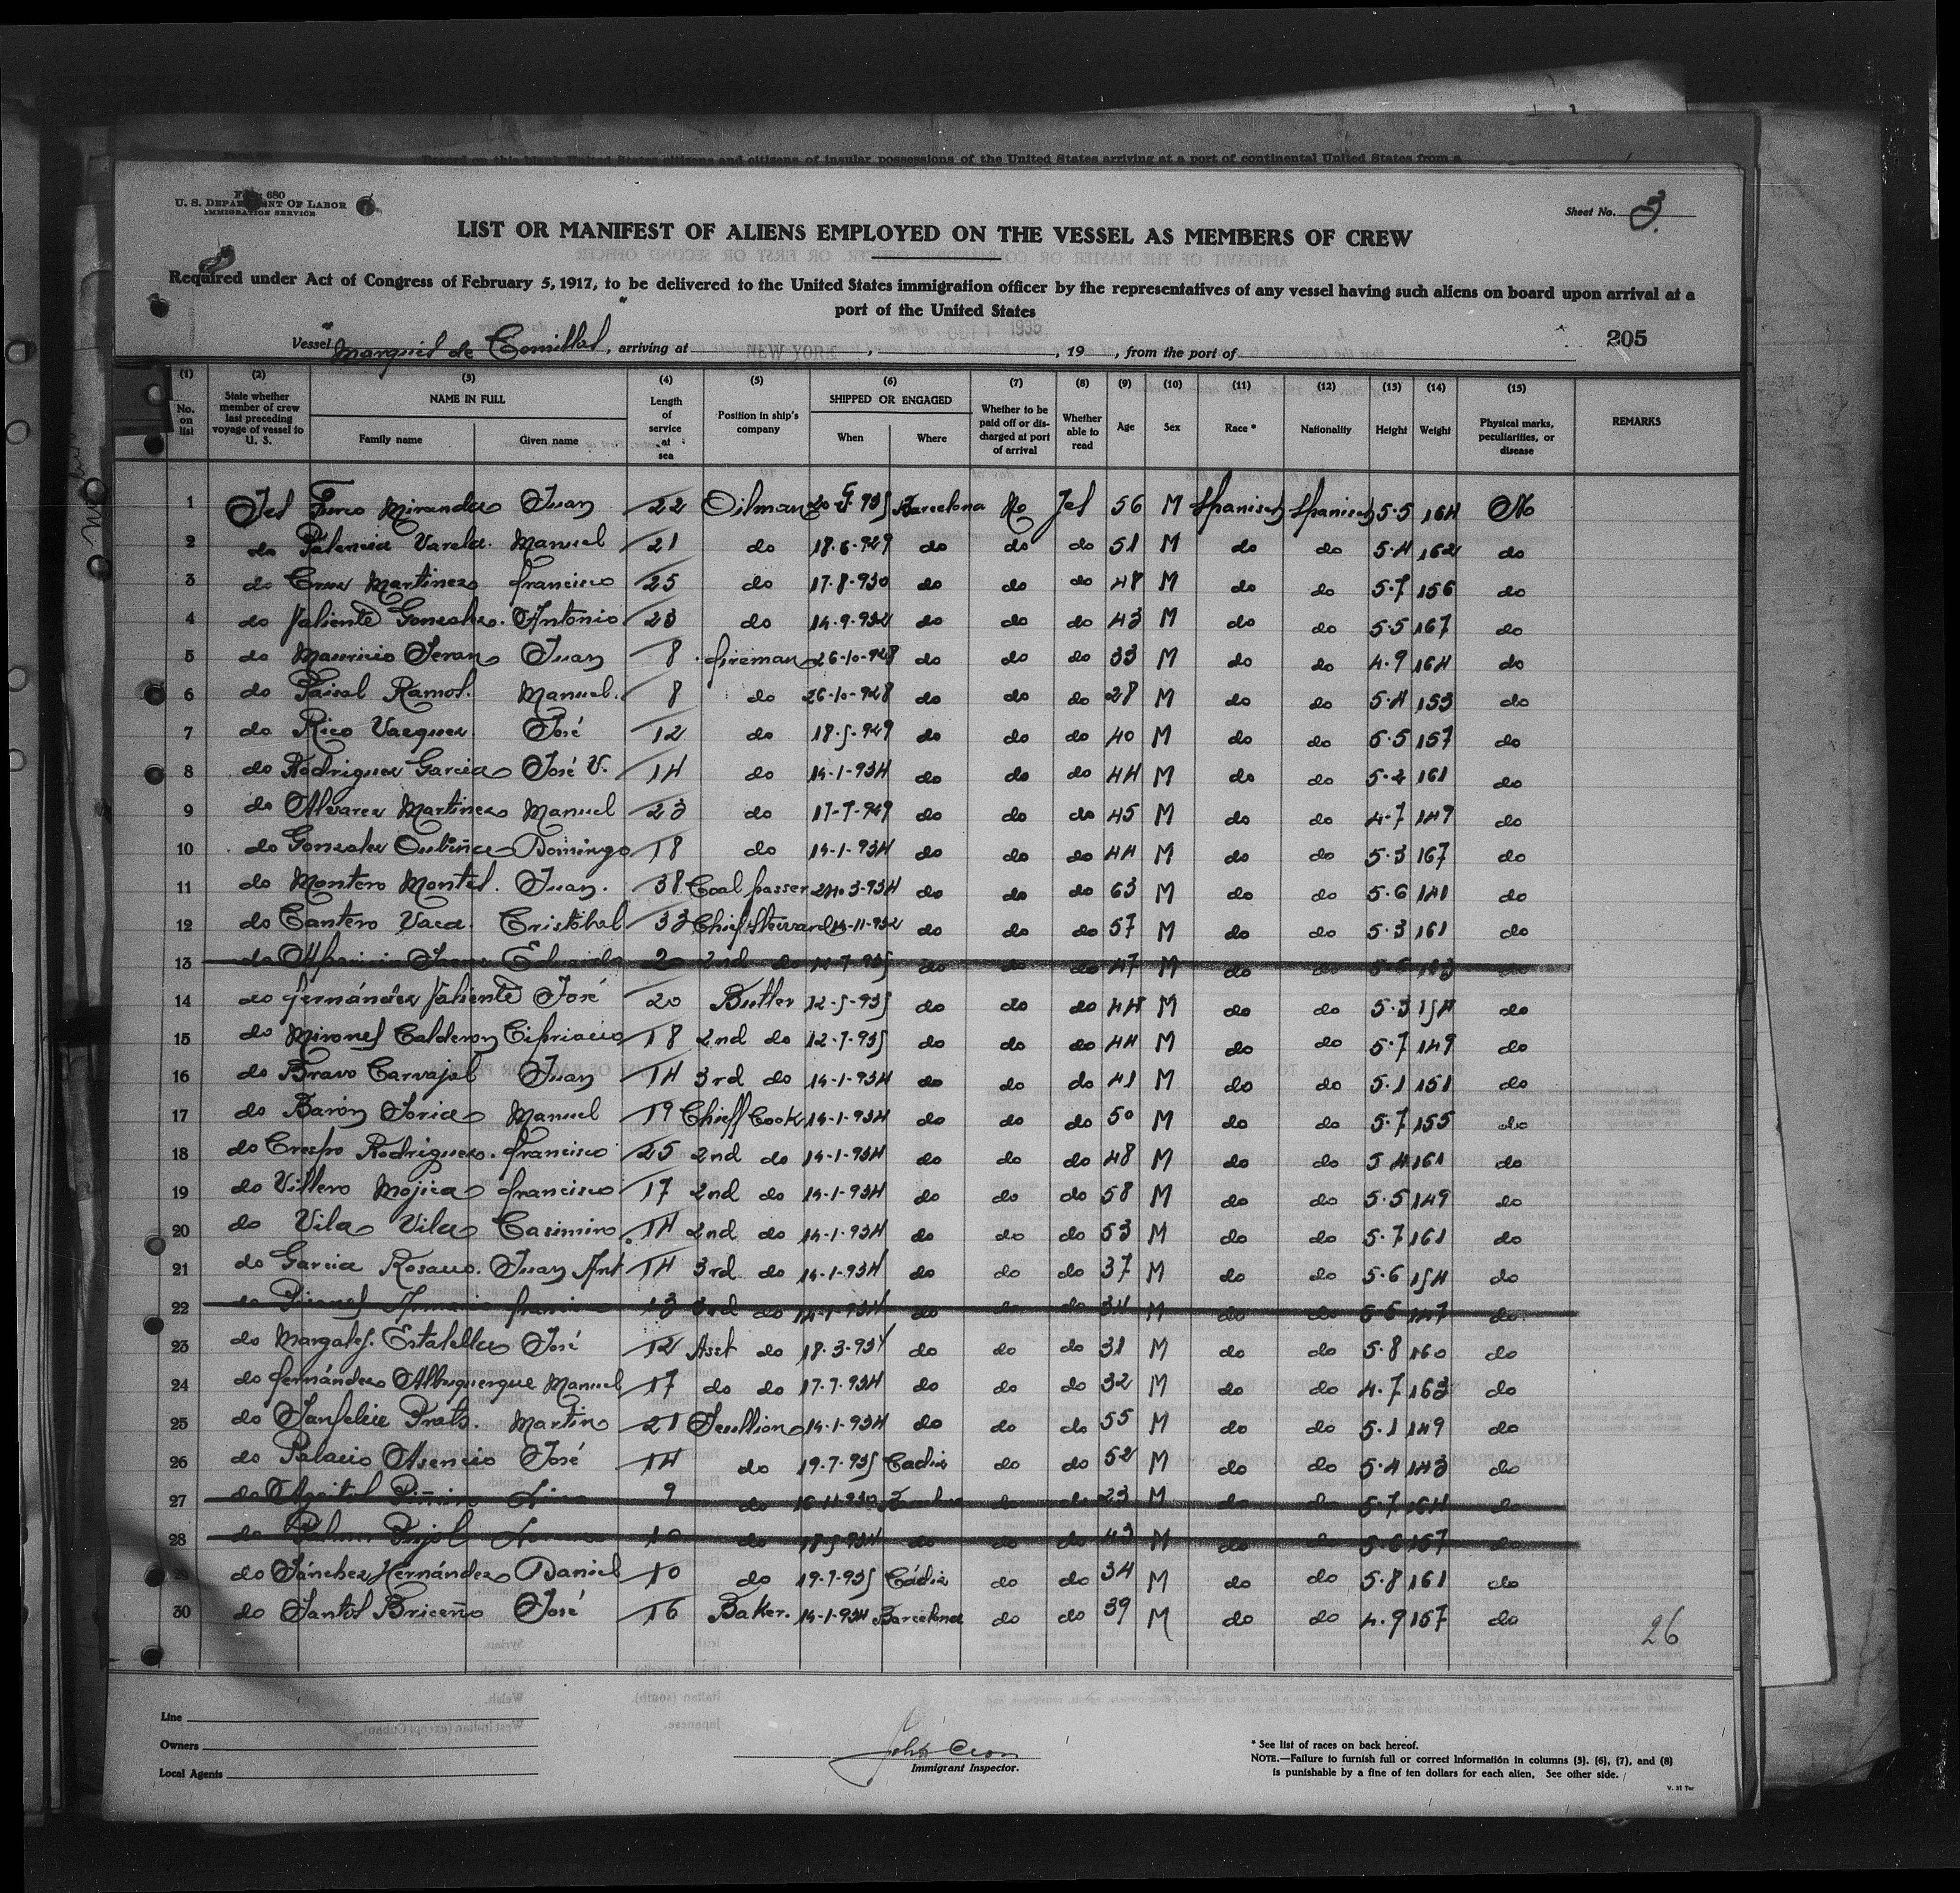 Form 680
U. S. DEPARTMENT OF LABOR
IMMIGRATION SERVICE
Sheet No. 3.
LIST OR MANIFEST OF ALIENS EMPLOYED ON THE VESSEL AS MEMBERS OF CREW
Required under Act of Congress of February 5, 1917, to be delivered to the United States immigration officer by the representatives of any vessel having such aliens on board upon arrival at a
port of the United States
Vessel "Marqués de Comillas", arriving at NEW YORK, 1935, 19 , from the port of 205
(1) No. on list (2) State whether member of crew last preceding voyage of vessel to U. S. (3) NAME IN FULL Family name Given name (4) Length of service at sea (5) Position in ship's company (6) SHIPPED OR ENGAGED When Where (7) Whether to be paid off or discharged at port of arrival (8) Whether able to read (9) Age (10) Sex (11) Race * (12) Nationality (13) Height (14) Weight (15) Physical marks, peculiarities, or disease REMARKS
1 Yes Miranda Juan 22 Oilman 935 Barcelona No Yes 56 M Spanish Spanish 5.5 164 No
2 do Palencia Varela Manuel 21 do 18.6.929 do do do 51 M do do 5.4 162 do
3 do Cruz Martinez Francisco 25 do 17.8.930 do do do 48 M do do 5.7 156 do
4 do Valiente Gonzalez Antonio 23 do 14.9.932 do do do 43 M do do 5.5 167 do
5 do Mauricio Teran Juan 8 fireman 26-10-928 do do do 33 M do do 4.9 164 do
6 do Ramos Manuel 8 do 26-10-928 do do do 28 M do do 5.4 153 do
7 do Rico Vazquez José 12 do 18.5.929 do do do 40 M do do 5.5 157 do
8 do Rodriguez Garcia José V. 14 do 14-1-934 do do do 44 M do do 5.2 161 do
9 do Alvarez Martinez Manuel 23 do 17-7-929 do do do 45 M do do 4.7 149 do
10 do Gonzalez Outiña Domingo 18 do 14-1-934 do do do 44 M do do 5.3 167 do
11 do Montero Montes Juan 38 Coal passer 3-934 do do do 63 M do do 5.6 141 do
12 do Cantero Vaca Cristóbal 33 Chief Steward 14-11-932 do do do 57 M do do 5.3 161 do
13 do Aparicio Eduardo 20 2nd do 12-7-935 do do do 47 M do do do
14 do Fernández Valiente José 20 Butler 12-5-935 do do do 44 M do do 5.3 154 do
15 do Mirones Calderon Cipriano 18 2nd do 12-7-935 do do do 44 M do do 5.7 149 do
16 do Bravo Carvajal Juan 14 3rd do 14-1-934 do do do 41 M do do 5.1 151 do
17 do Barón Soria Manuel 19 Chieff Cook 14-1-934 do do do 50 M do do 5.7 155 do
18 do Crespo Rodriguez Francisco 25 2nd do 14-1-934 do do do 48 M do do 5.4 161 do
19 do Villero Mojica Francisco 17 2nd do 14-1-934 do do do 58 M do do 5.5 149 do
20 do Vila Vila Casimiro 14 2nd do 14-1-934 do do do 53 M do do 5.7 161 do
21 do Garcia Rosano Juan Ant 14 3rd do 14-1-934 do do do 37 M do do 5.6 154 do
22 do 13 3rd do 14-1-934 do do do 34 M do do 5.5 147 do
23 do Margalef Estatella José 12 Asst do 18.3.934 do do do 31 M do do 5.8 160 do
24 do Fernández Albuquerque Manuel 17 do do 17.7.934 do do do 32 M do do 4.7 163 do
25 do Sanfeliu Prats Martin 21 Scullion 14-1-934 do do do 55 M do do 5.1 149 do
26 do Palacio Asencio José 14 do 19.7.935 Cadiz do do 52 M do do 5.4 143 do
27 do Piñeiro 9 do 16-11-930 Barcelona do do 23 M do do 5.7 164 do
28 do Pujol 10 do 18.5.934 do do do 43 M do do 5.6 157 do
29 do Sánchez Hernández Daniel 10 do 19.7.935 Cádiz do do 34 M do do 5.8 161 do
30 do Santos Briceño José 16 Baker. 14-1-934 Barcelona do do 39 M do do 4.9 157 do
26
Line
Owners
Local Agents
Immigrant Inspector.
* See list of races on back hereof.
NOTE.—Failure to furnish full or correct information in columns (3), (6), (7), and (8)
is punishable by a fine of ten dollars for each alien. See other side.